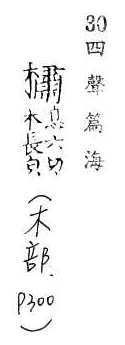 30四聲篇海
橚
息六切
木長皃
(木部、P300)